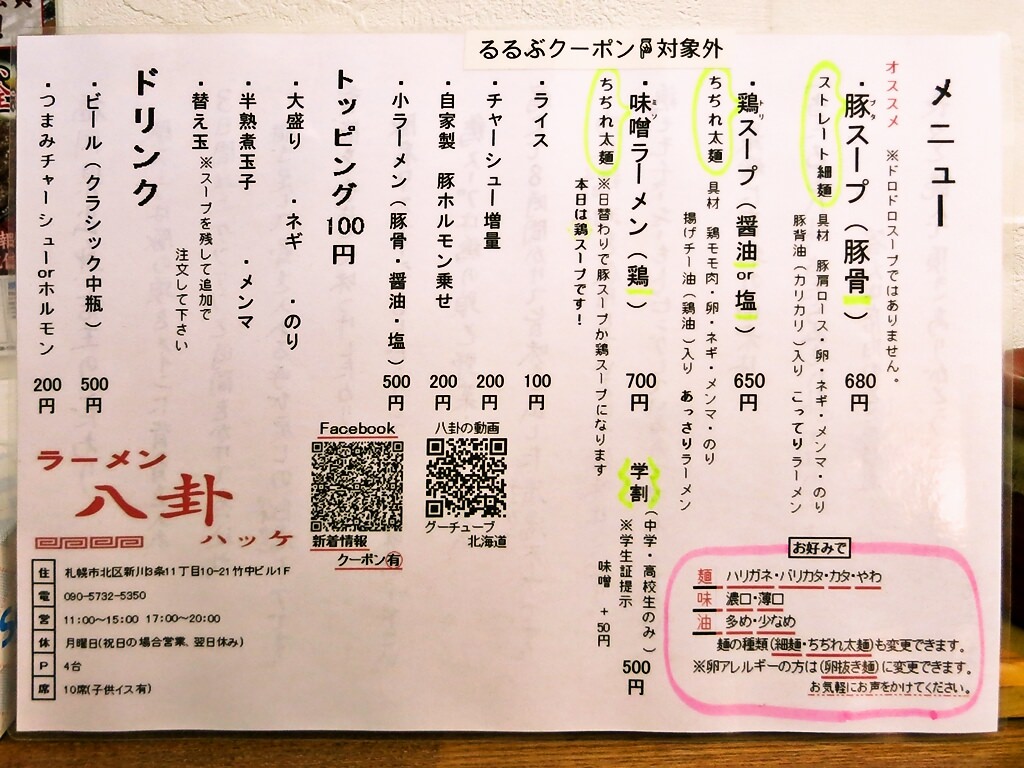 るるぶクーポン 対象外
メニュー
オススメ ※ドロドロスープではありません。
・豚スープ（豚骨） 680円
ブタ
ストレート細麺
具材 豚肩ロース・卵・ネギ・メンマ・のり
豚背油（カリカリ）入り こってりラーメン
・鶏スープ（醤油or塩） 650円
トリ
ちぢれ太麺
具材 鶏モモ肉・卵・ネギ・メンマ・のり
揚げチー油（鶏油）入り あっさりラーメン
・味噌ラーメン（鶏） 700円
ミソ
ちぢれ太麺
※日替わりで豚スープか鶏スープになります
本日は鶏スープです！
学割（中学・高校生のみ） 500円
※学生証提示
味噌 ＋50円
・ライス 100円
・チャーシュー増量 200円
・自家製 豚ホルモン乗せ 200円
・小ラーメン（豚骨・醤油・塩） 500円
トッピング 100円
・大盛り ・ネギ ・のり
・半熟煮玉子 ・メンマ
・替え玉 ※スープを残して追加で
注文して下さい
ドリンク
・ビール（クラシック中瓶） 500円
・つまみチャーシューorホルモン 200円
ラーメン
八卦
ハッケ
Facebook
新着情報
クーポン有
八卦の動画
グーチューブ
北海道
住 札幌市北区新川3条11丁目10-21竹中ビル1F
電 090-5732-5350
営 11:00～15:00 17:00～20:00
休 月曜日(祝日の場合営業、翌日休み)
P 4台
席 10席(子供イス有)
お好みで
麺 ハリガネ・バリカタ・カタ・やわ
味 濃口・薄口
油 多め・少なめ
麺の種類(細麺・ちぢれ太麺)も変更できます。
※卵アレルギーの方は(卵抜き麺)に変更できます。
お気軽にお声をかけてください。